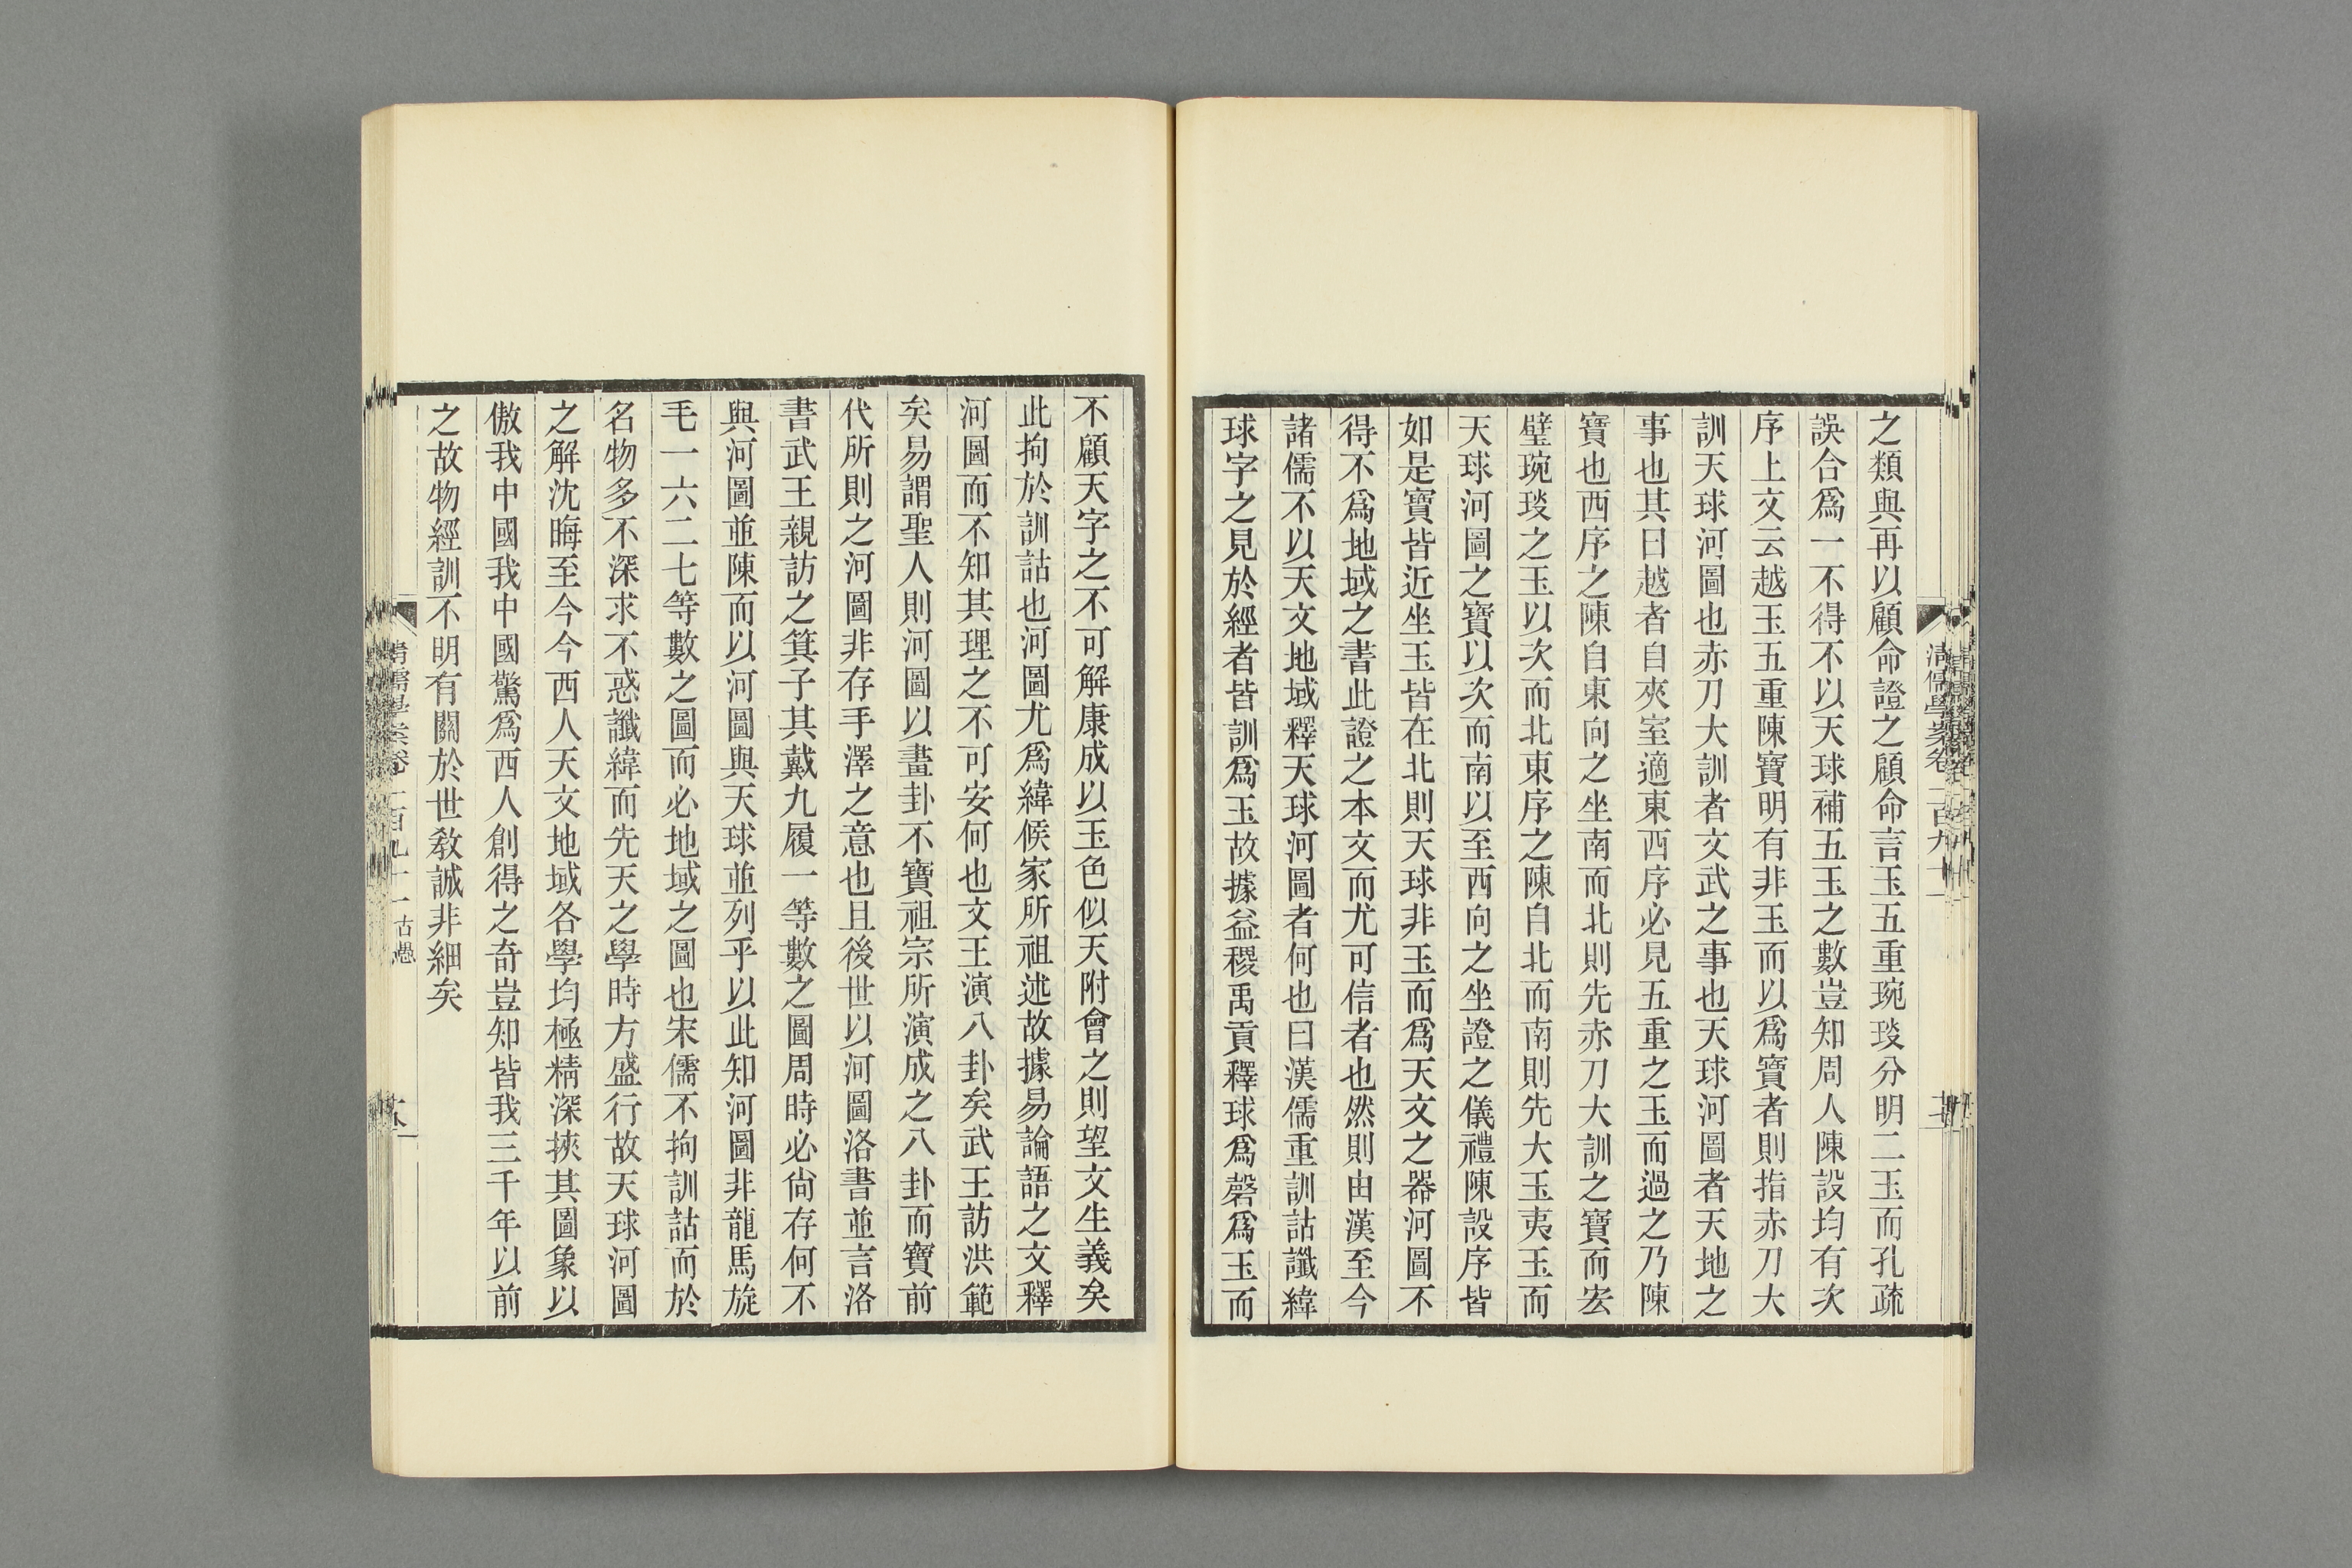 之類與再以顧命證之顧命言玉五重琬琰分明二玉而孔疏
誤合爲一不得不以天球補五玉之數豈知周人陳設均有次
序上文云越玉五重陳寶明有非玉而以爲寶者則指赤刀大
訓天球河圖也赤刀大訓者文武之事也天球河圖者天地之
事也其曰越者自夾室適東西序必見五重之玉而過之乃陳
寶也西序之陳自東向之坐南而北則先赤刀大訓之寶而宏
璧琬琰之玉以次而北東序之陳自北而南則先大玉夷玉而
天球河圖之寶以次而南以至西向之坐證之儀禮陳設序皆
如是寶皆近坐玉皆在北則天球非玉而爲天文之器河圖不
得不爲地域之書此證之本文而尤可信者也然則由漢至今
諸儒不以天文地域釋天球河圖者何也曰漢儒重訓詁讖緯
球字之見於經者皆訓爲玉故據益稷禹貢釋球爲磬爲玉而
不顧天字之不可解康成以玉色似天附會之則望文生義矣
此拘於訓詁也河圖尤爲緯候家所祖述故據易論語之文釋
河圖而不知其理之不可安何也文王演八卦矣武王訪洪範
矣易謂聖人則河圖以畫卦不寶祖宗所演成之八卦而寶前
代所則之河圖非存手澤之意也且後世以河圖洛書並言洛
書武王親訪之箕子其戴九履一等數之圖周時必尙存何不
與河圖並陳而以河圖與天球並列乎以此知河圖非龍馬旋
毛一六二七等數之圖而必地域之圖也宋儒不拘訓詁而於
名物多不深求不惑讖緯而先天之學時方盛行故天球河圖
之解沈晦至今今西人天文地域各學均極精深挾其圖象以
傲我中國我中國驚爲西人創得之奇豈知皆我三千年以前
之故物經訓不明有關於世敎誠非細矣